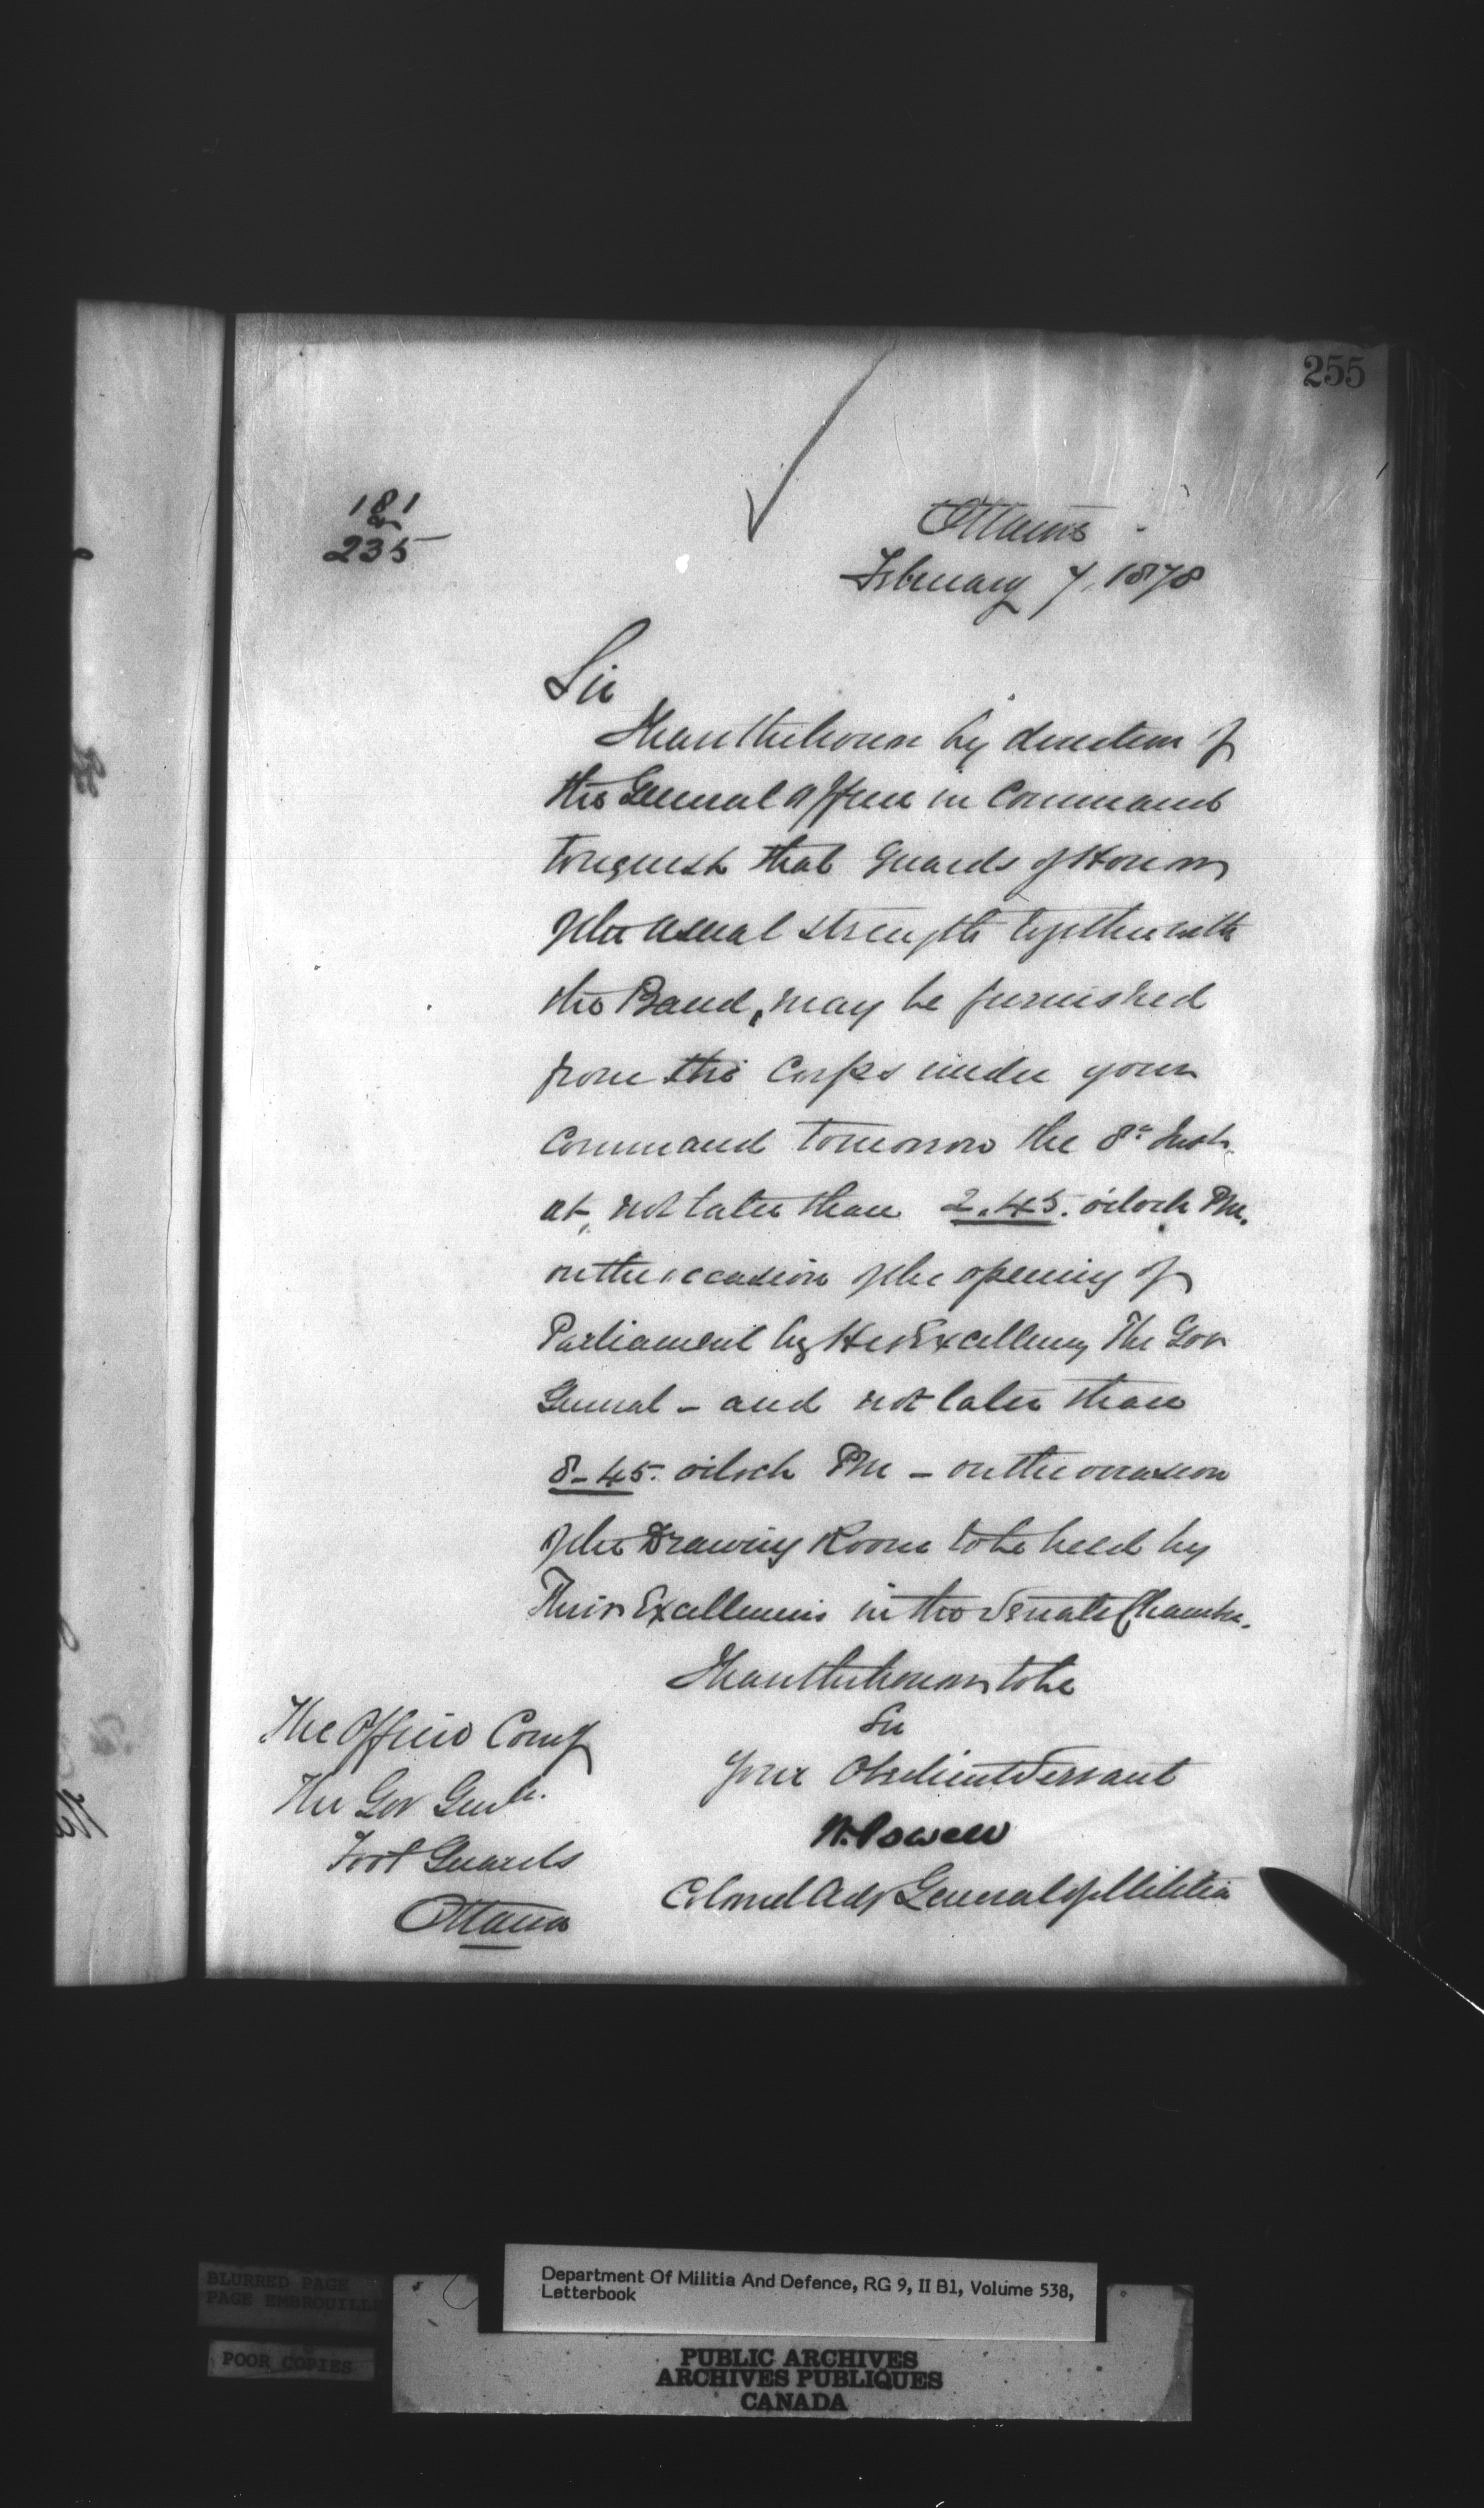 255
181
235
Ottawa
February 7, 1878
Sir
I have the honor by direction of
the General Officer in Command
to request that Guards of Honour
of the usual strength together with
the Band, may be furnished
from the Corps under your
Command tomorrow the 8th Inst.
at, not later than 2.45. o'clock PM.
on the occasion of the opening of
Parliament by His Excellency The Gov
General - and not later than
8-45. o'clock PM - on the occasion
of the Drawing Room to be held by
Their Excellencies in the Senate Chamber.
I have the honour to be
Sir
Your Obedient Servant
W. Powell
Colonel Adj General of Militia
The Officer Comg
The Gov Genls.
Foot Guards
Ottawa
BLURRED PAGE
PAGE EMBROUILLE
POOR COPIES
Department Of Militia And Defence, RG 9, II B1, Volume 538,
Letterbook
PUBLIC ARCHIVES
ARCHIVES PUBLIQUES
CANADA